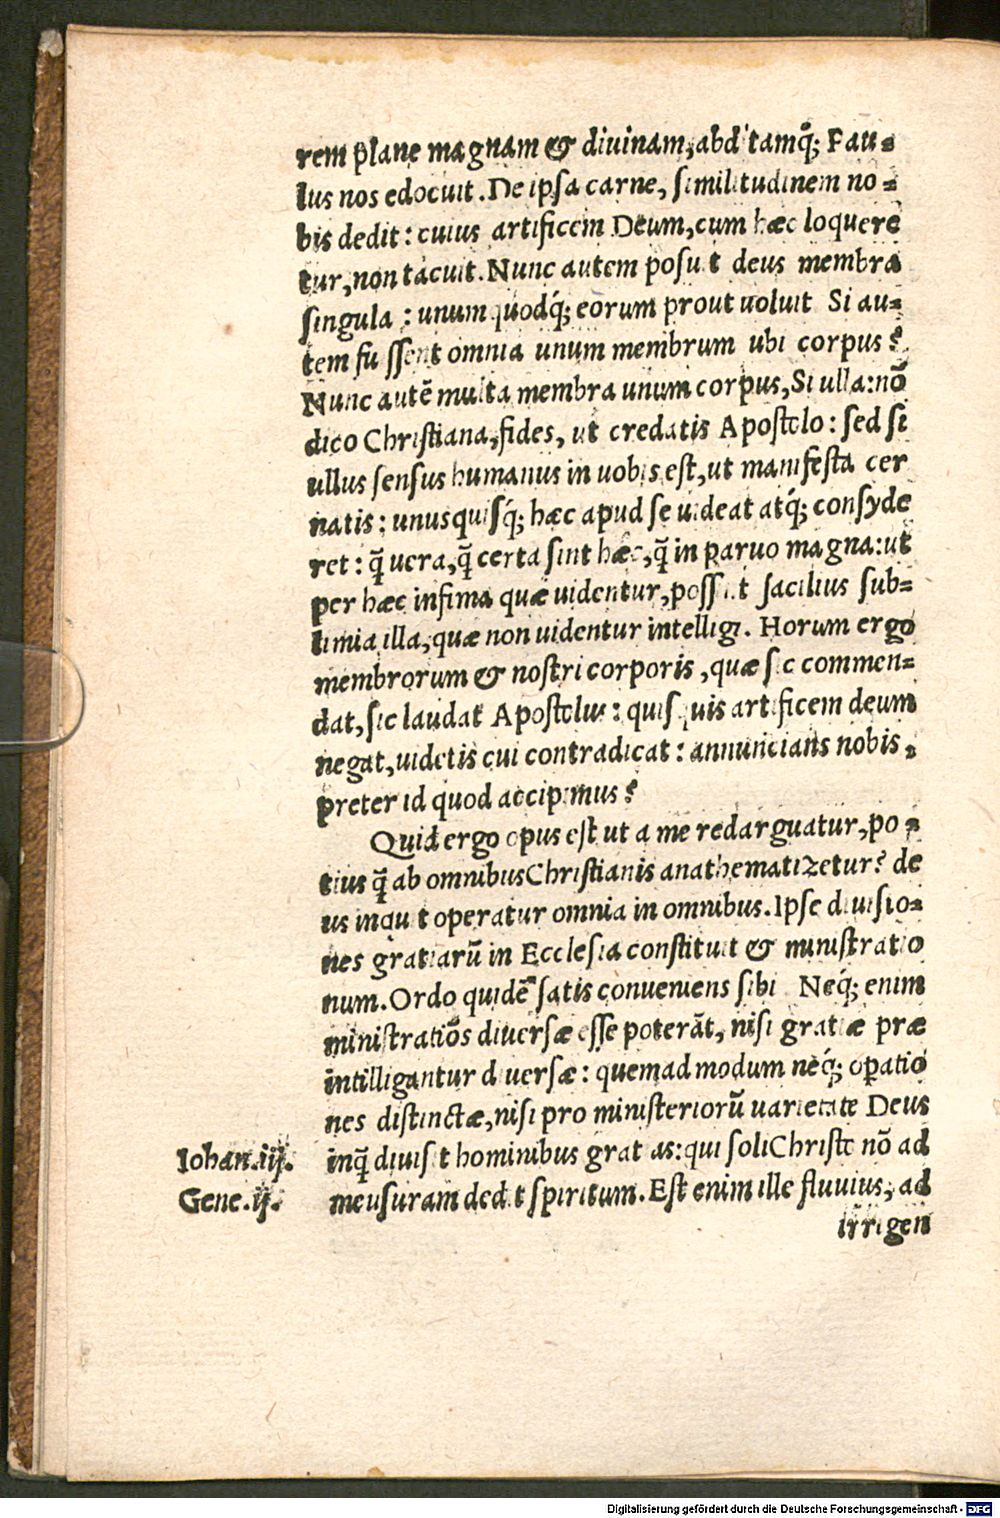 rem plane magnam & diuinam, abditamq́; Pau-
lus nos edocuit. De ipsa carne, similitudinem no-
bis dedit: cuius artificem Deum, cum hæc loquere
tur, non tacuit. Nunc autem posuit deus membra
singula: unum quodq́; eorum prout uoluit Si au-
tem fuissent omnia unum membrum ubi corpus?
Nunc autē multa membra unum corpus, Si ulla: nō
dico Christiana, fides, ut credatis Apostolo: sed si
ullus sensus humanus in uobis est, ut manifesta cer
natis: unusquisq́; hæc apud se uideat atq́; consyde
ret: q̃ uera, q̃ certa sint hæc, q̃ in paruo magna: ut
per hæc infima quæ uidentur, possint facilius sub-
limia illa, quæ non uidentur intelligi. Horum ergo
membrorum & nostri corporis, quæ sic commen-
dat, sic laudat Apostolus: quisquis artificem deum
negat, uidetis cui contradicat: annuncians nobis,
preter id quod accipimus?
Quid ergo opus est ut a me redarguatur, po-
tius q̃ ab omnibus Christianis anathematizetur? de
us inquit operatur omnia in omnibus. Ipse diuisio-
nes gratiarū in Ecclesia constituit & ministratio
num. Ordo quidē satis conueniens sibi Neq́; enim
ministratiōs diuersæ esse poterāt, nisi gratiæ præ
intilligantur diuersæ: quemadmodum neq́; opatio
nes distinctæ, nisi pro ministeriorū uarietate Deus
Iohan. iij. inq̃ diuisit hominibus gratias: qui soli Christo nō ad
Gene. ij. meusuram dedit spiritum. Est enim ille fluuius, ad
irrigen
Digitalisierung gefördert durch die Deutsche Forschungsgemeinschaft - DFG